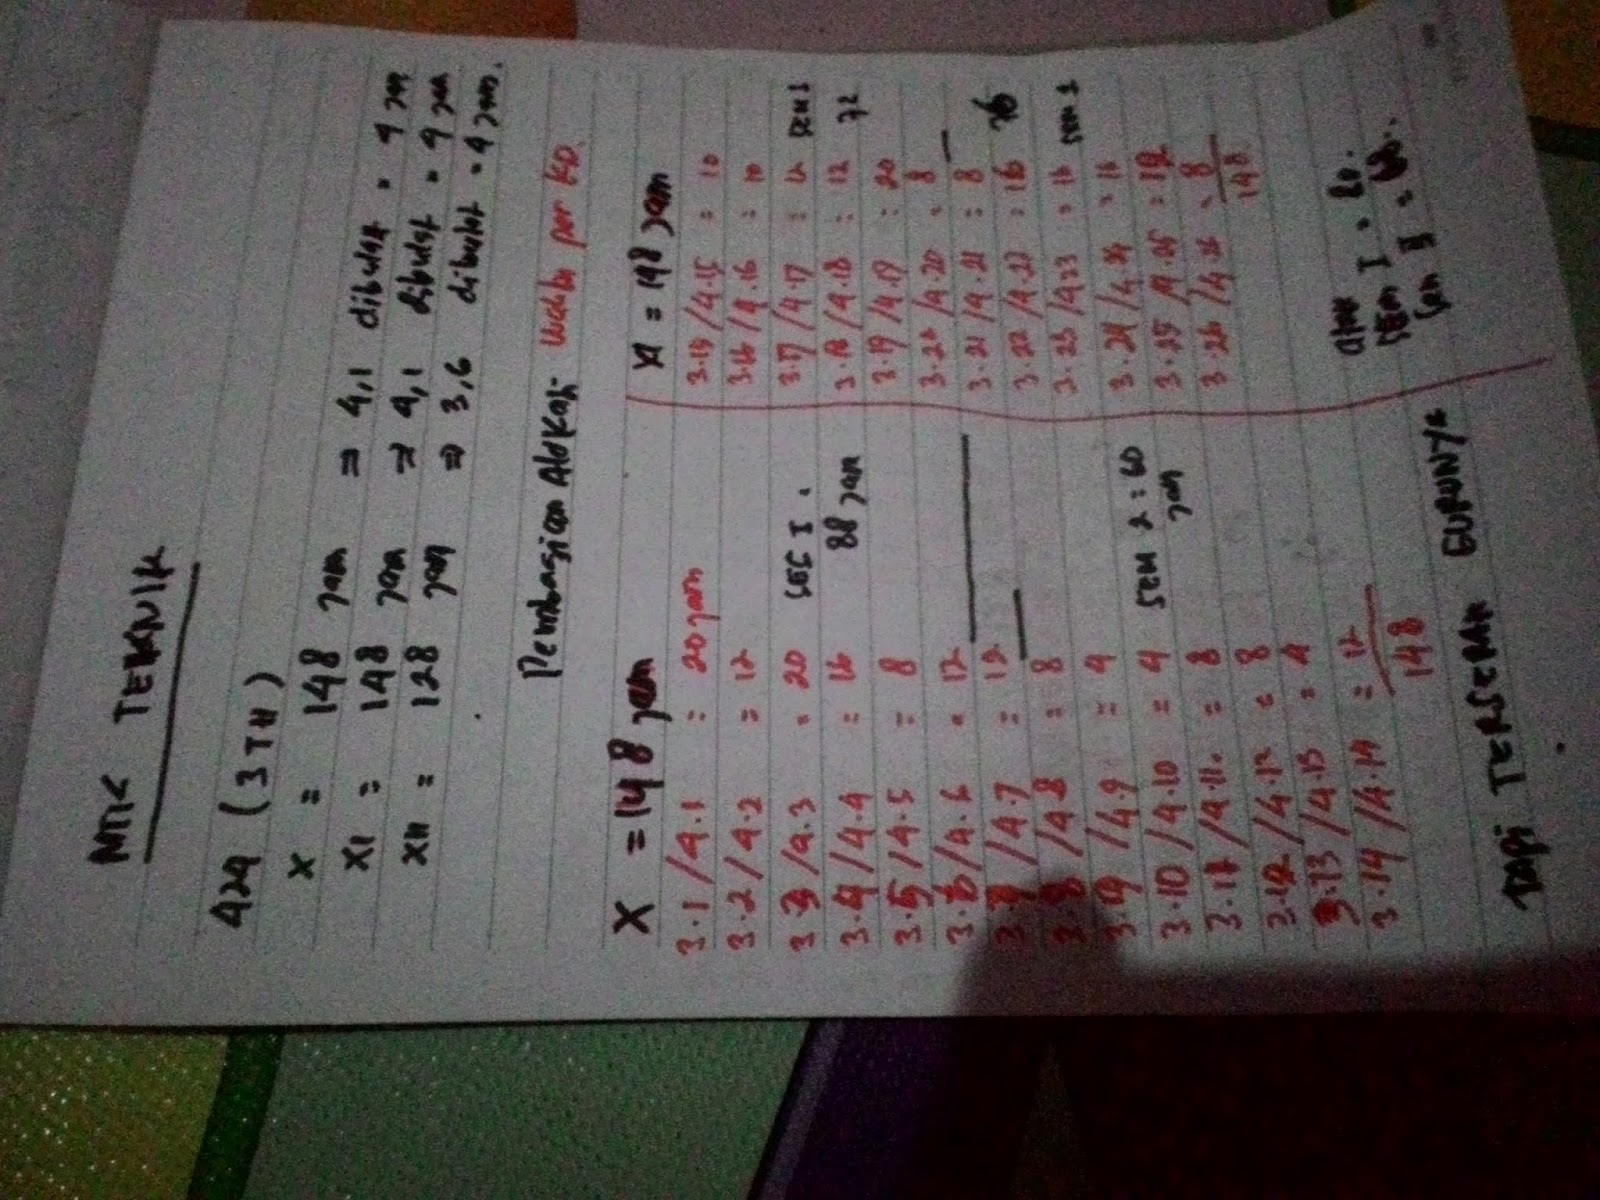 MTK TEKNIK
424 (3 TH)
X = 148 jam ⇒ 4,1 dibulat = 4 jam
XI = 148 jam ⇒ 4,1 dibulat = 4 jam
XII = 128 jam ⇒ 3,6 dibulat = 4 jam.
Pembagian Alokasi waktu per KD.
X = 148 jam
3.1 / 4.1 = 20 jam
3.2 / 4.2 = 12
3.3 / 4.3 = 20
3.4 / 4.4 = 16
3.5 / 4.5 = 8
3.6 / 4.6 = 12
3.7 / 4.7 = 12
3.8 / 4.8 = 8
3.9 / 4.9 = 4
3.10 / 4.10 = 4
3.11 / 4.11 = 8
3.12 / 4.12 = 8
3.13 / 4.13 = 4
3.14 / 4.14 = 12
148
88 jam
SEM 2 = 60
jam
XI = 148 jam
3.15 / 4.15 = 10
3.16 / 4.16 = 10
3.17 / 4.17 = 12
3.18 / 4.18 = 12
3.19 / 4.19 = 20
3.20 / 4.20 = 8
3.21 / 4.21 = 8
3.22 / 4.22 = 16
3.23 / 4.23 = 16
3.24 / 4.24 = 16
3.25 / 4.25 = 12
3.26 / 4.26 = 8
148
SEM 1
72
76
atau
SEM I = 80.
Sem II =
TAPI TERSERAH GURUNYA